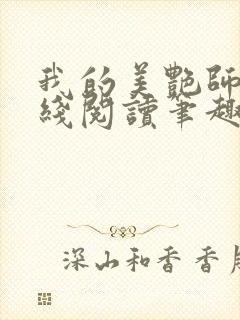 我的美艷師
綫閱讀筆趣
深山和香香